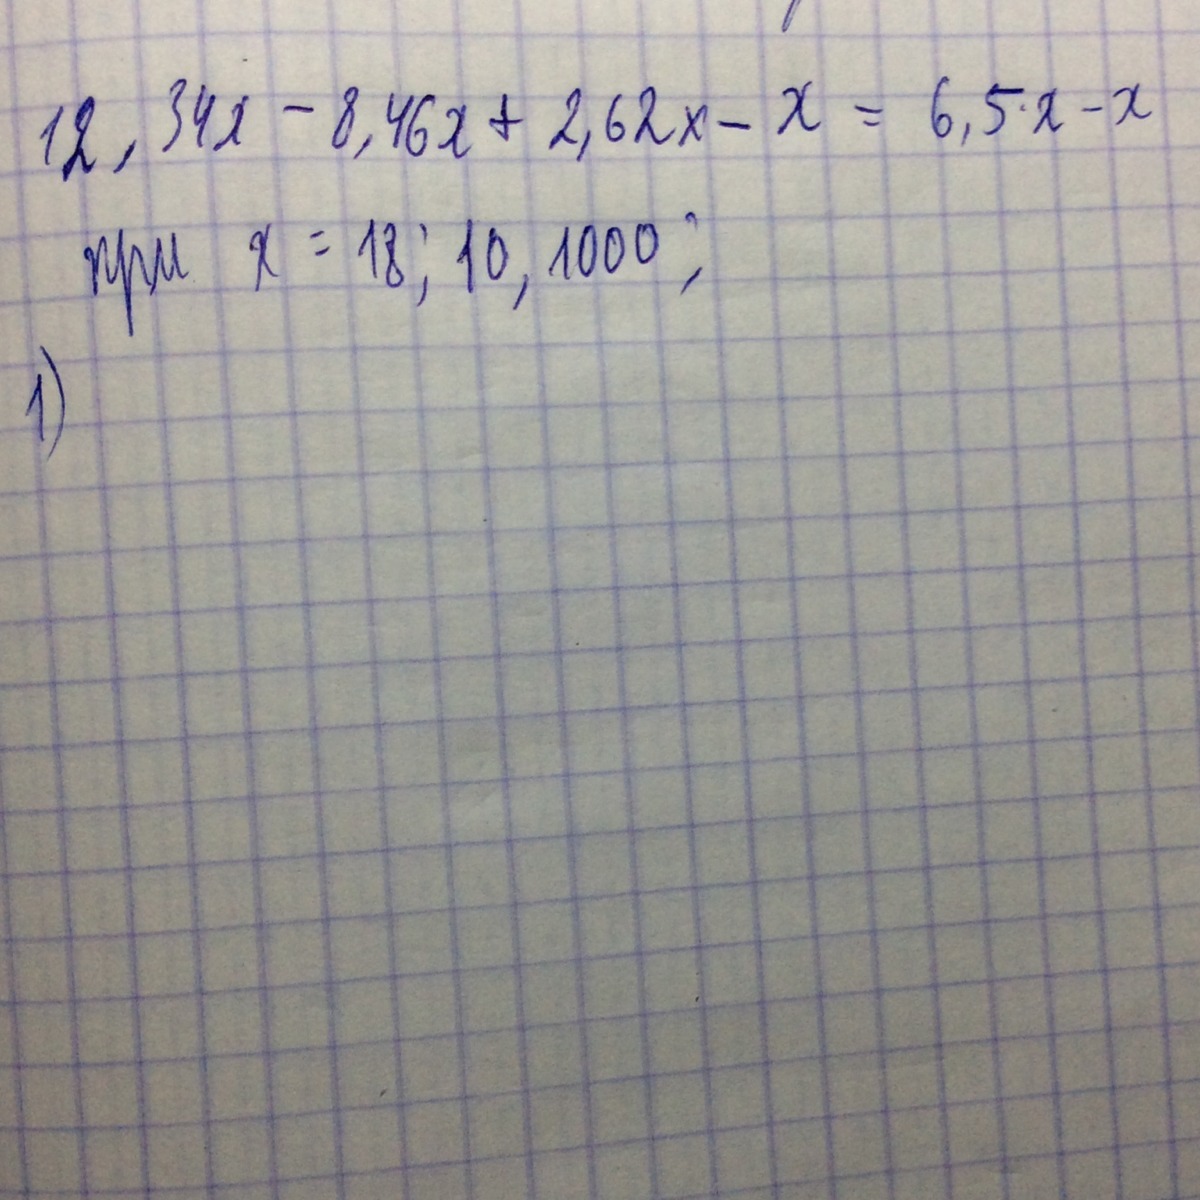 12,34x - 8,46x + 2,62x - x = 6,5·x - x
при x = 18; 10, 1000;
1)